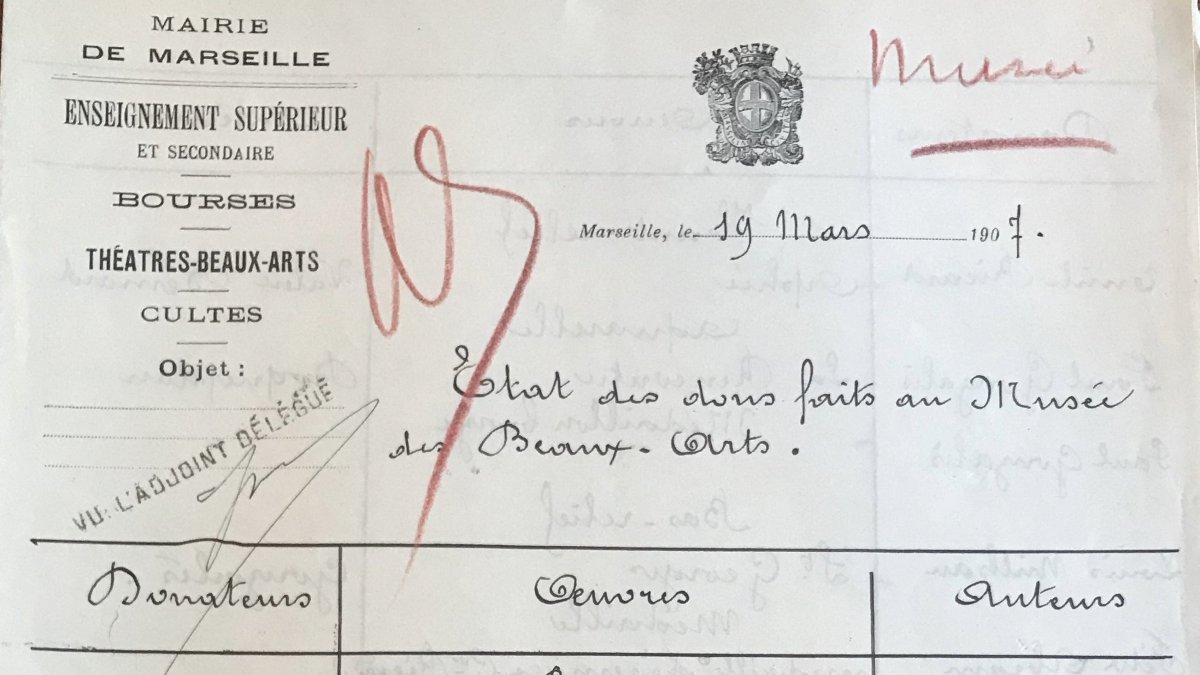 MAIRIE
DE MARSEILLE
ENSEIGNEMENT SUPÉRIEUR
ET SECONDAIRE
BOURSES
THÉATRES-BEAUX-ARTS
CULTES
Objet :
VU: L'ADJOINT DÉLÉGUÉ
Musée
Marseille, le 19 Mars 1907.
Etat des dons faits au Musée
des Beaux-Arts.
Donateurs Oeuvres Auteurs